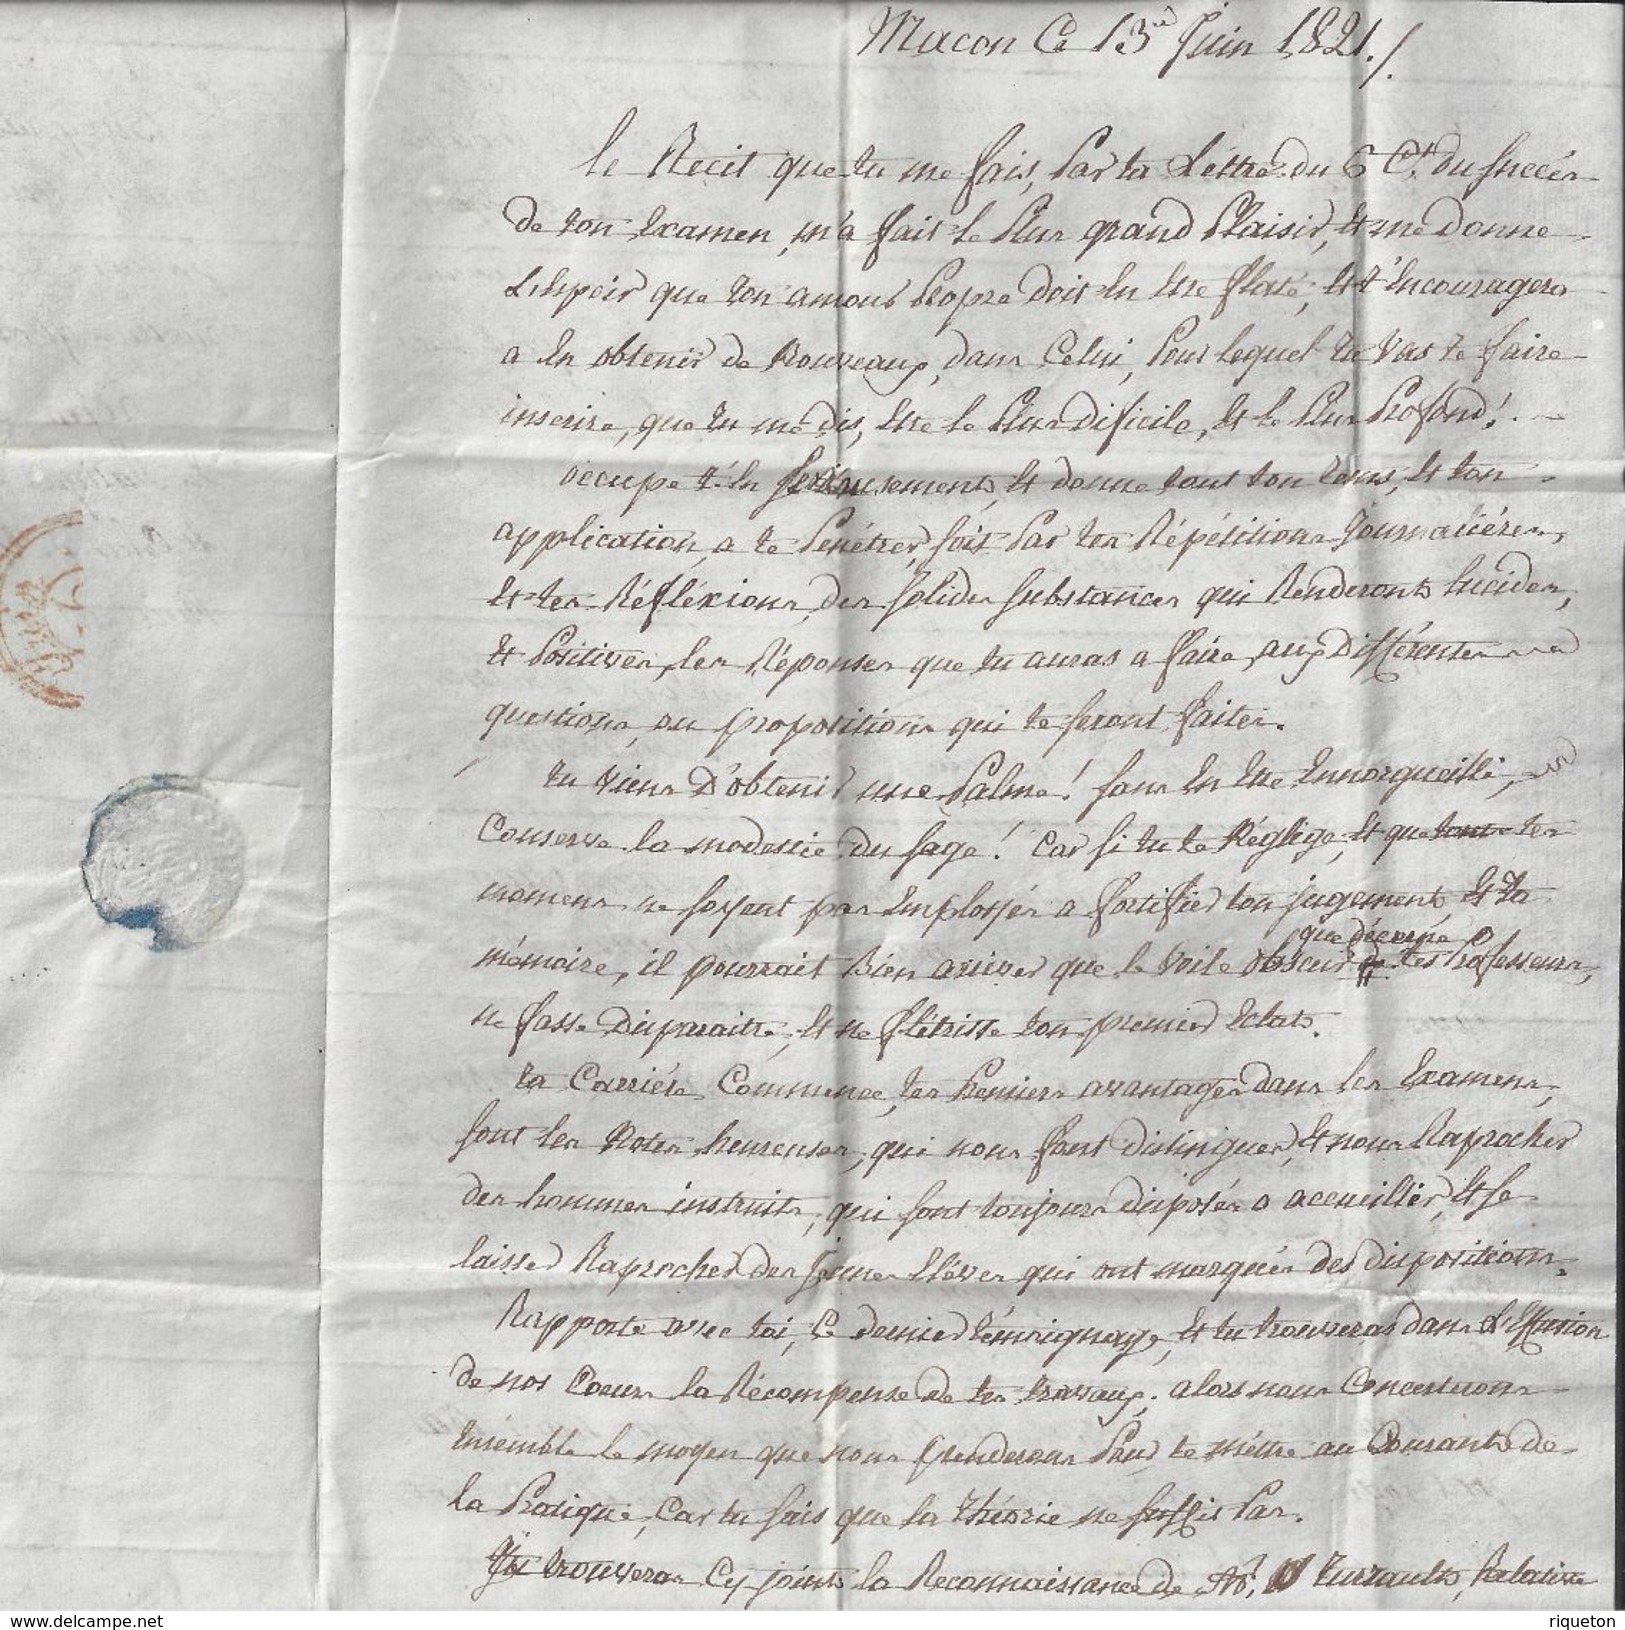 Macon Ce 13 Juin 1821./.
le Recit que tu me fais, Par ta Léttre du 6 Ct. du succés
de ton Examen, m'a fait le Plus grand Plaisir, Et me donne
L'Espoir que ton amour Propre doit En Etre flaté, Et t'Encouragera
a En obtenir de Nouveaux, dans Celui, Pour lequel tu Vas te faire
inscrire, que tu me dis, Etre le Plus Dificile, Et le Plus Profond!
occupe t'En serieusements, Et donne tout ton tems, Et ton
application, a te Penétrer, soit Par tes Répétitions Journaliéres,
Et tes Réfléxions, des solides substances qui Renderonts lucides,
Et Positives, les Réponses que tu auras a faire, aux Différentes
questions, ou propositions qui te seront faites.
tu viens D'obtenir une Palme! sans En Etre Ennorgueilli,
Conserve la modestie du sage! Car si tu te Néglige, Et que tes
momens ne soyent pas Employés a fortifier ton jugements, Et ta
que décerne
mémoire, il pourrait Bien arriver que le Voile obscur les Professeurs,
ne fasse Disparaitre, Et ne flétrisse ton premier Eclats.
ta Carriére Commence, tes Premiers avantages dans les Examens,
sont les Notes heureuses, qui nous font distinguer, Et nous Raprocher
des hommes instruits, qui sont toujours disposés a accueillir, Et se
laisser Raprocher des Jeunes Eléves qui ont marqués des dispositions.
Rapporte avec toi, Ce dernier témoignage, Et tu trouveras dans L'Effusion
de nos Coeurs la Récompense de tes travaux, alors nous Concerterons
Ensemble le moyen que nous prenderons Pour te méttre au Courants de
la Pratique, Car tu sais que la théorie ne suffis Pas.
Tu trouveras Cy joints la Reconnaissance de Mr. Turraults, Relative
delcampe.net
riqueton